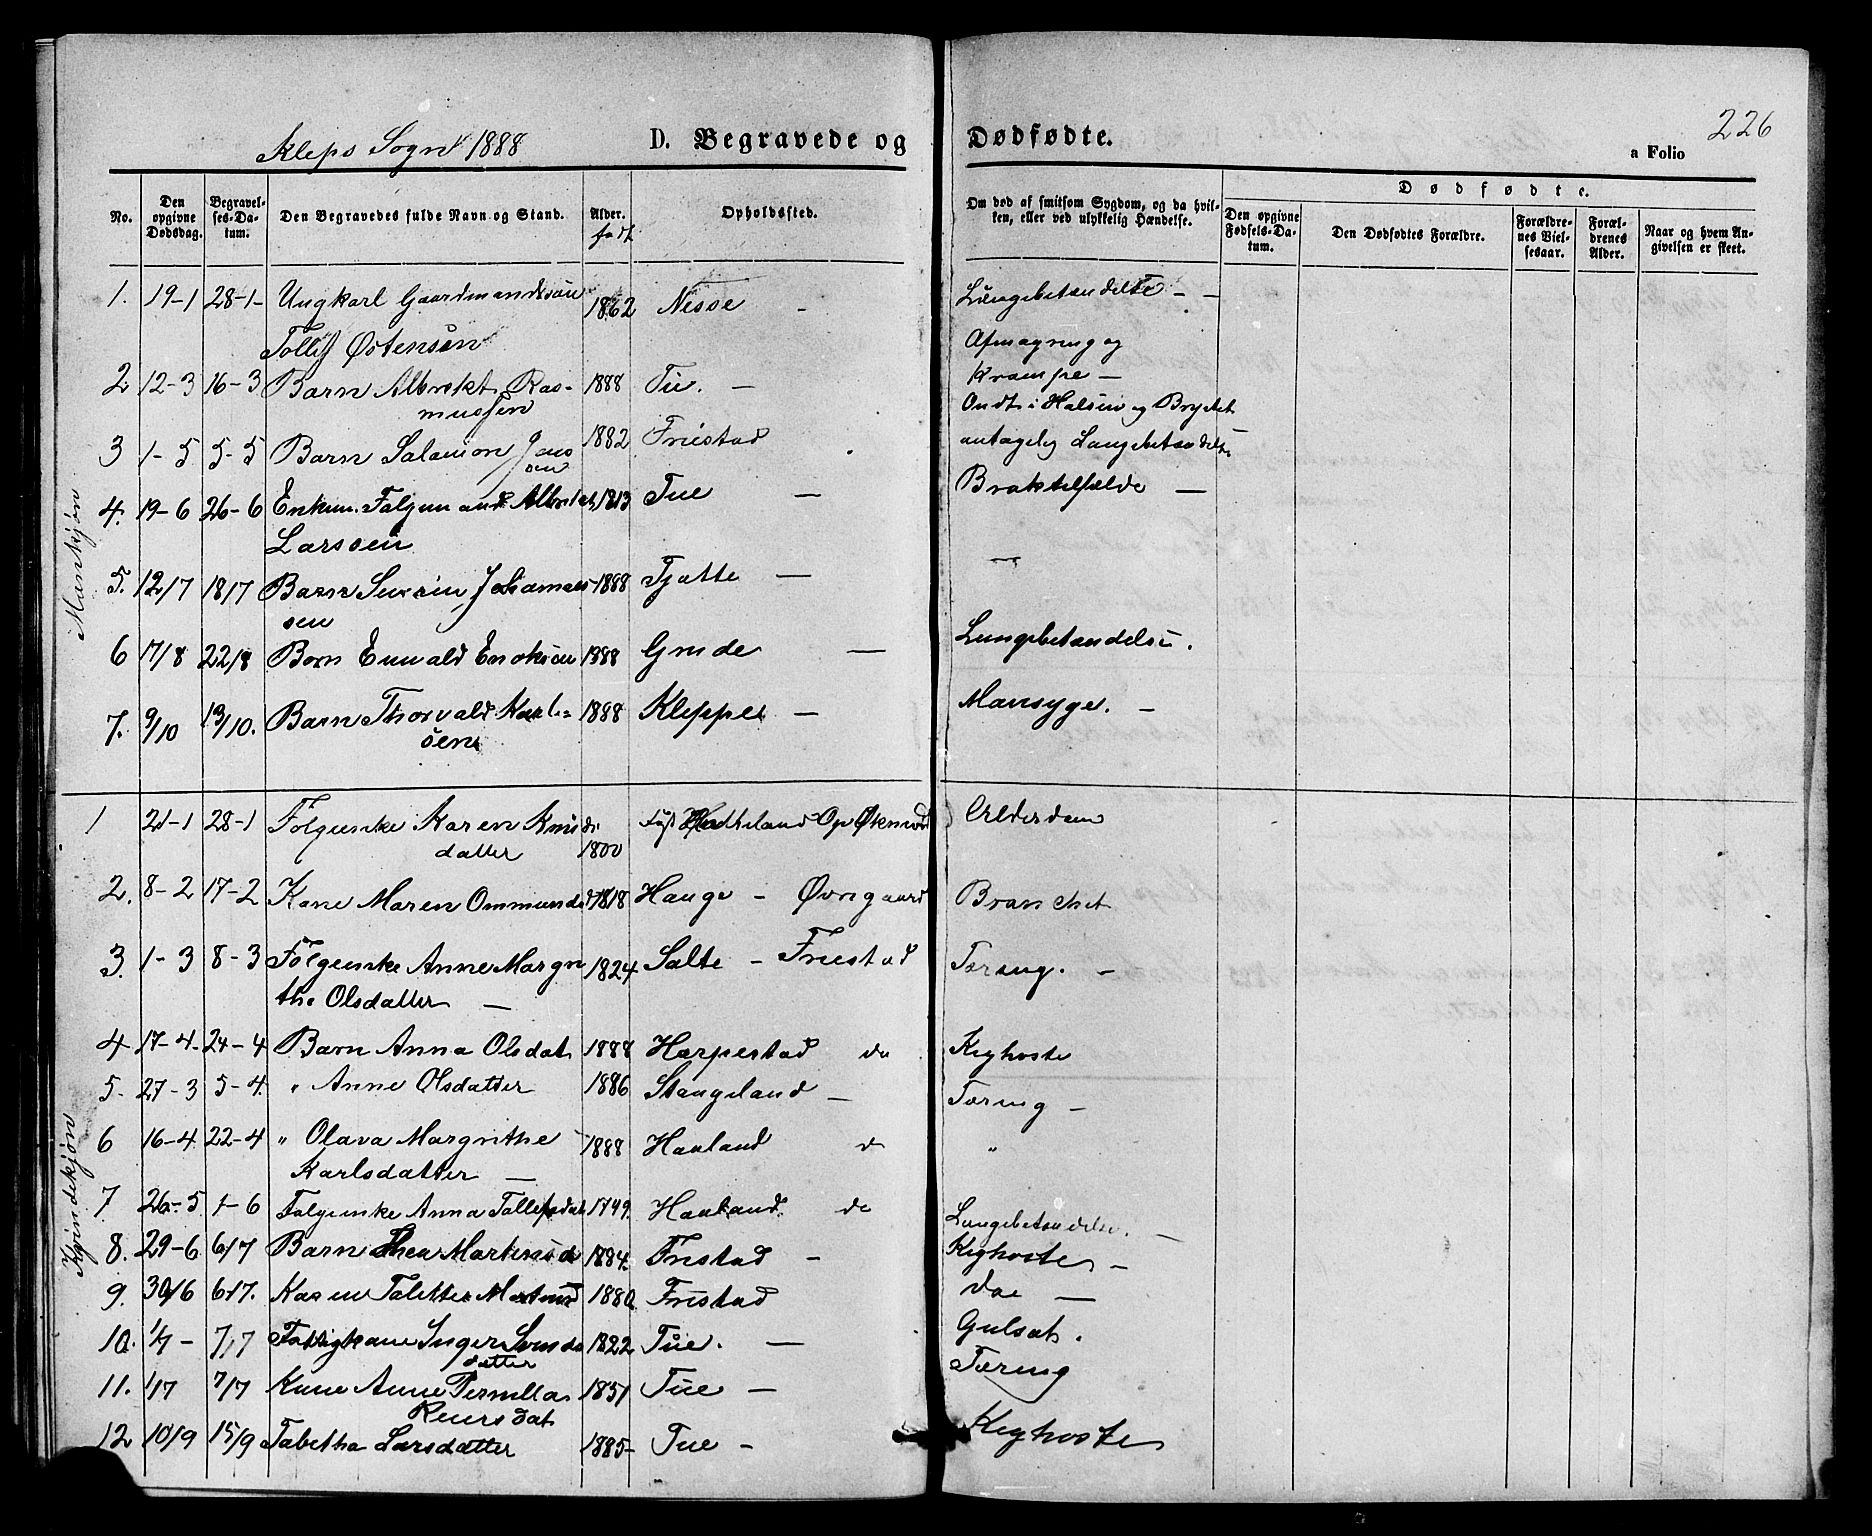 226
Kleps Sogn 1888 D. Begravede og Dødfødte.
a Folio
No. Den opgivne Dødsdag. Begravelses-Datum. Den Begravedes fulde Navn og Stand. Alder. født Opholdssted. Om død af smitsom Sygdom, og da hvilken, eller ved ulykkelig Hændelse. Dødfødte. Den opgivne Fødsels-Datum. Den Dødfødtes Forældre. Forældrenes Vielsesaar. Forældrenes Alder. Naar og hvem Angivelsen er skeet.
Mankjøn
1. 19-1 28-1- Ungkarl Gaardmandssøn 1862 Nesse - Lungebetændelse - -
Tollif Østensen
2 12-3 16-3 Barn Albrekt Ras- 1888 Tu. - Afmagring og
mussen Krampe -
3 1-5 5-5 Barn Salamon Jons 1882 Friestad Ondt i Halsen og Brystet
sen antagelig Lungebetændelse
4. 19-6 26-6 Enkem. Følgemand Albrekt 1813 Tue - Braktilfælde -
Larssen
5. 12/7 18/7 Barn Sivrin Johannes- 1888 Tjøtte - -
sen
6 17/8 22/8 Barn Envald Enoksen 1888 Grude - Lungebetændelse.
7. 9/10 13/10. Barn Thorvald Karl- 1888 Kleppe - Mavesyge. -
sen
Kvindekjøn
1 21-1 28-1 Følgeenke Karen Knuds 1800 Hatteland Alderdom
datter
2. 8-2 17-2 Kone Maren Ommundsd 1818 Hauge - Øvregaard Brønchet
3. 1-3 8-3 Følgeenke Anne Margre 1824 Salte - Friestad Tæring. -
the Olsdatter -
4 17-4- 24-4 Barn Anna Olsdat 1888 Harpestad do Kighoste
5- 27-3 5-4. " Anne Olsdatter 1886 Stangeland - Tæring -
6 16-4 22-4 " Olava Margrithe 1888 Haaland do "
Karlsdatter -
7 26-5 1-6 Følgeenke Anna Tollefsdat 1799. Haaland do Lungebetændelse. -
8. 29-6 6/7 Barn Thea Martensd 1884. Frestad - Kighoste -
9. 30/6 6/7. Karen Taletta Martensd 1880 Frestad do -
10. 1/7- 7/7 Fattigkone Inger Svends 1822 Tue. - Gulsot.
datter
11. 1/7 7/7 Kone Anne Pernilla 1851 Tue - Tæring
Reiersdat
12 10/9 15/9 Tabetha Larsdatter 1885- Tue - Kighoste